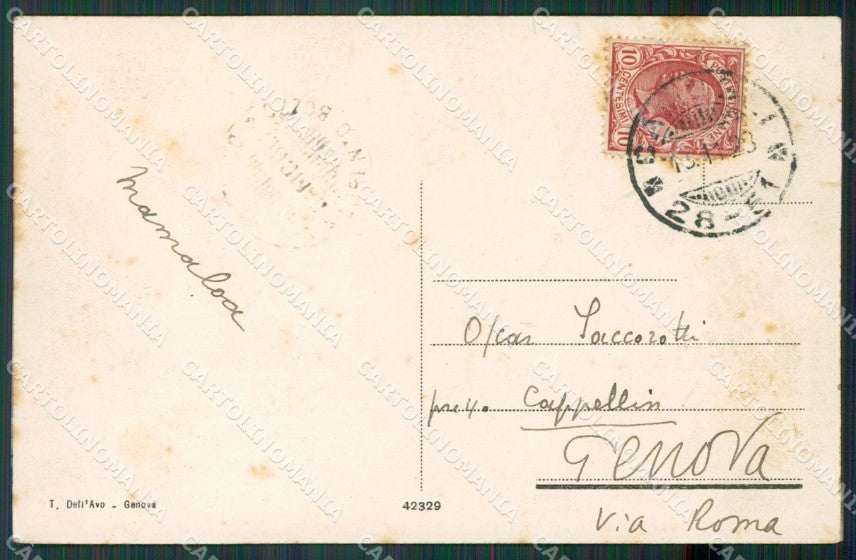 10 CENTESIMI 10
28-21
Mamaloa
Oscar Saccorotti
presso Cappellin
Genova
Via Roma
T. Dell'Avo - Genova
42329
CARTOLINOMANIA